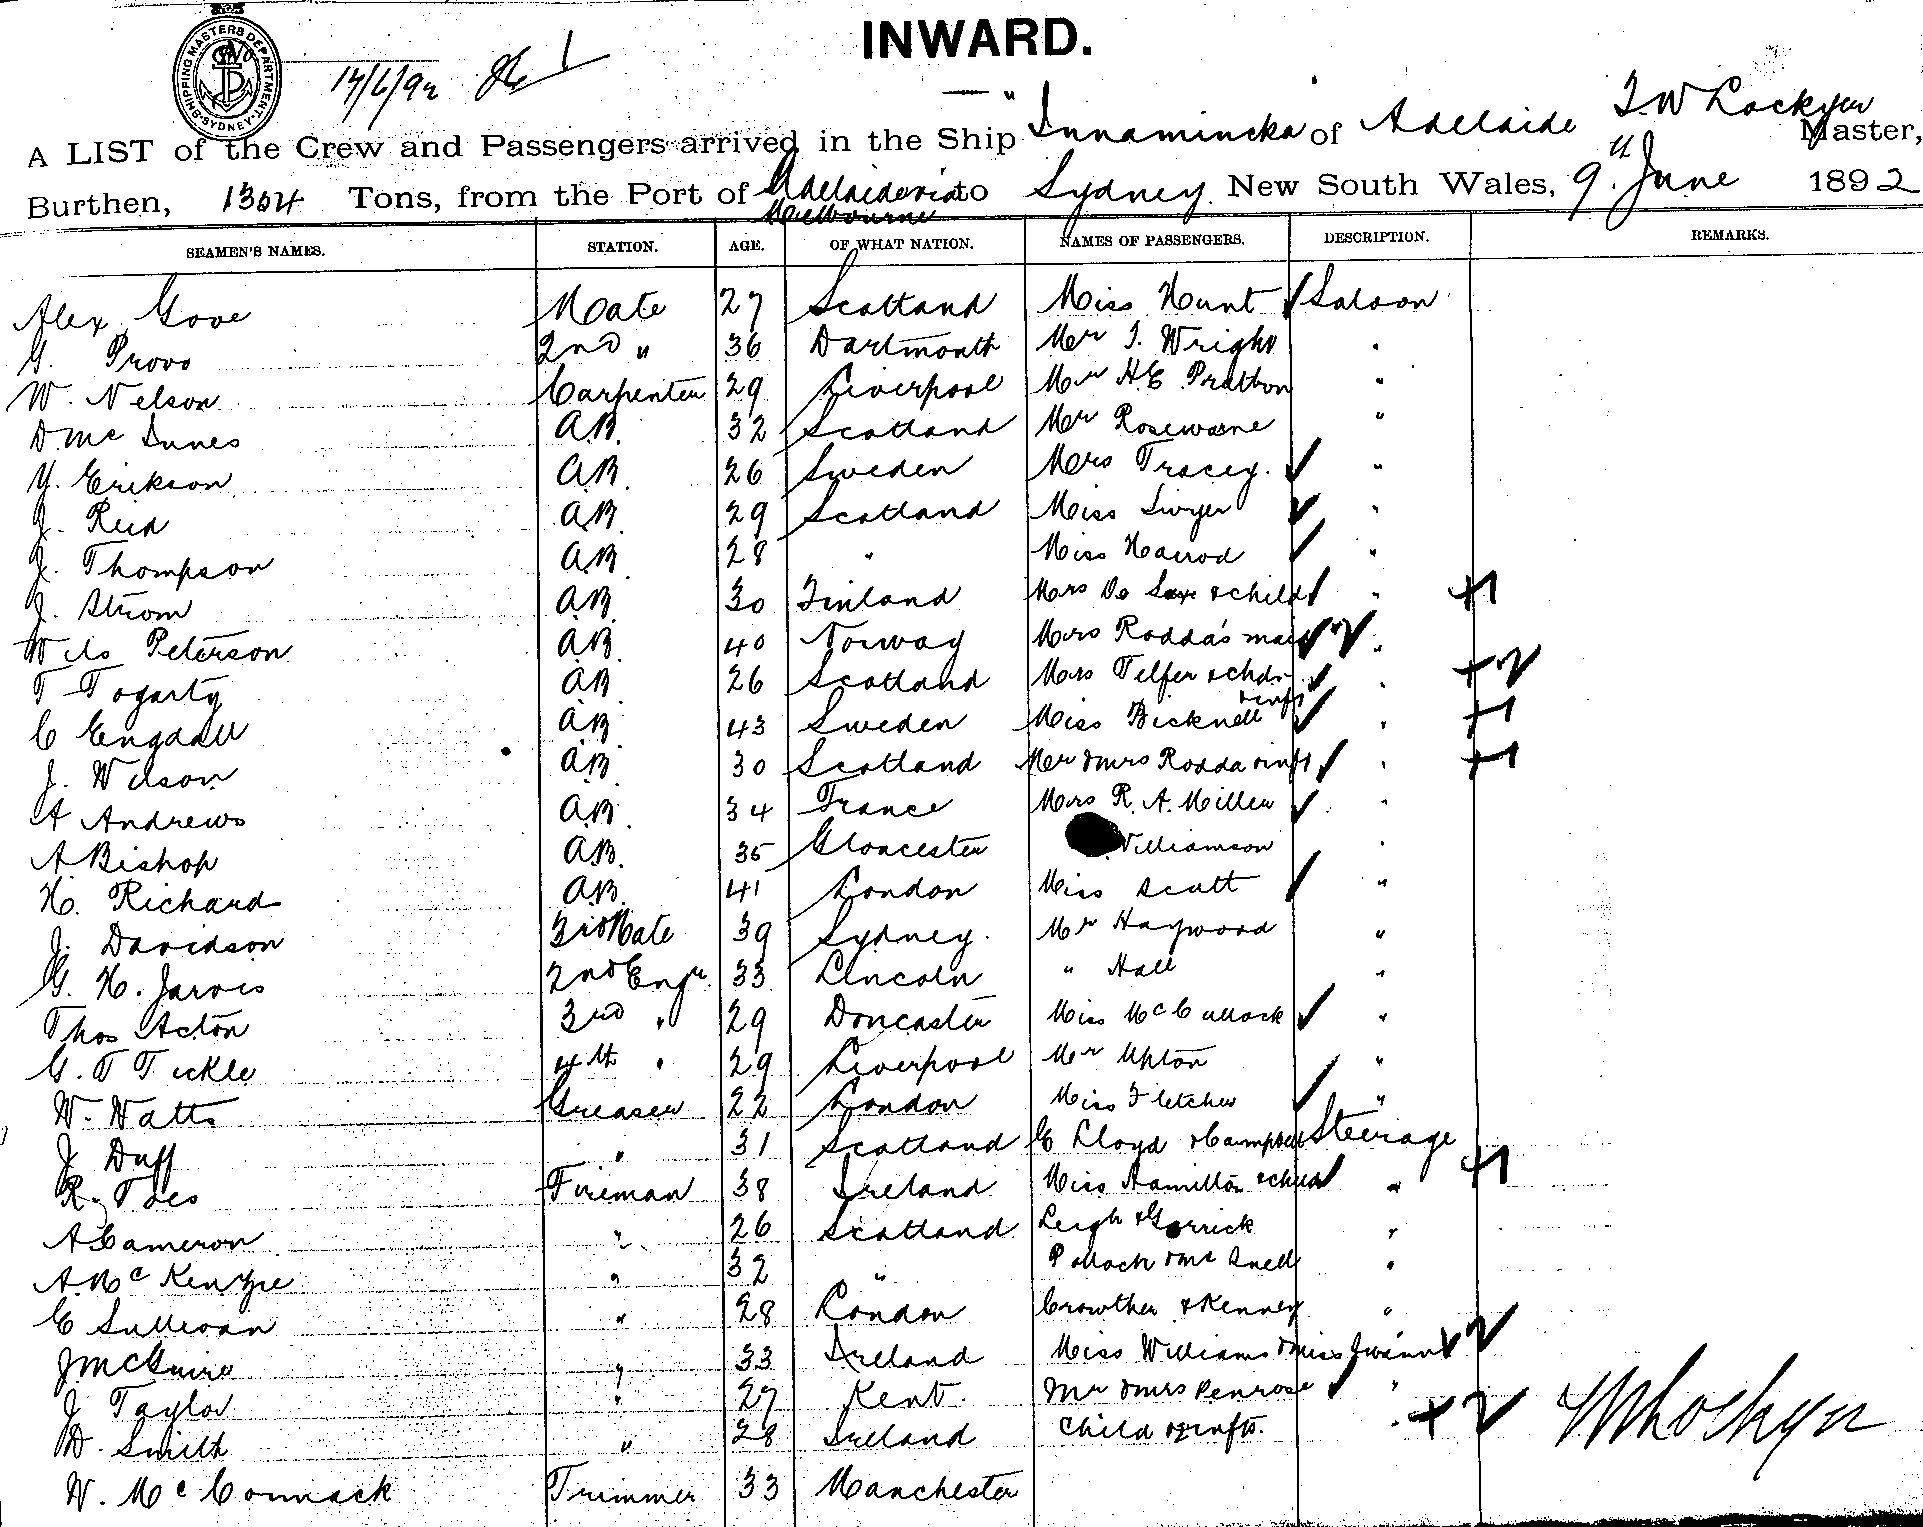 INWARD.
SHIPPING MASTERS DEPARTMENT. SYDNEY
14/6/92
A LIST of the Crew and Passengers arrived in the Ship Innamincka of Adelaide J W Lockyer Master,
Burthen, 1304 Tons, from the Port of Adelaide via Melbourne to Sydney New South Wales, 9th June 1892
SEAMEN'S NAMES. STATION. AGE. OF WHAT NATION. NAMES OF PASSENGERS. DESCRIPTION. REMARKS.
Alex Gove Mate 27 Scotland Miss Hunt Saloon
G. Provo 2nd " 36 Dartmouth Mr J. Wright "
W. Nelson Carpenter 29 Liverpool Mr H.E. Pratton "
D McInnes A.B. 32 Scotland Mr Rosewarne "
Y. Erikson A.B. 26 Sweden Mrs Tracey "
J. Reid A.B. 29 Scotland Miss "
J. Thompson A.B. 28 " Miss Harrod "
J. Strom A.B. 30 Finland Mrs De & child " +1
Nils Peterson A.B. 40 Norway Mrs Rodda's maid "
T Fogarty A.B. 26 Scotland Mrs Telfer & chdn & inft " +2
C Engdall A.B. 43 Sweden Miss Bicknell " +1
J. Wilson A.B. 30 Scotland Mr & Mrs Rodda & inft " +1
A Andrews A.B. 34 France Mrs R. A. Miller "
A Bishop A.B. 35 Gloucester Williamson "
H. Richard A.B. 41 London Miss Scott "
J. Davidson 3rd Mate 39 Sydney. Mr Haywood "
G. H. Jarvis 2nd Engr 33 Lincoln " Hall "
Thos Acton 3rd " 29 Doncaster Miss McCullock "
G. T Tickle 4th " 29 Liverpool Mr Upton "
W. Watts Greaser 22 London Miss Fletcher "
J Duff " 31 Scotland C Lloyd & Campbell Steerage
R. Fireman 38 Ireland Miss Hamilton & child " +1
A Cameron " 26 Scotland Leigh & Gorrick "
A. McKenzie " 32 " Pollock & "
C Sullivan " 28 London Crowther & Kenney "
J McGuire " 33 Ireland Miss Williams & Miss 2
J Taylor " 27 Kent. Mr & Mrs Penrose "
D. Smith " 28 Ireland Child & infts. " +2
W. McCormack Trimmer 33 Manchester
J W Lockyer